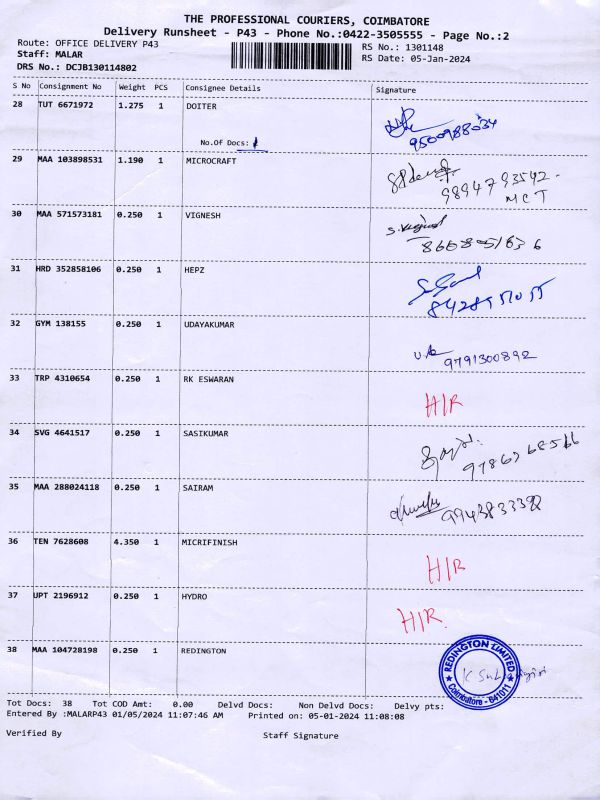 THE PROFESSIONAL COURIERS, COIMBATORE
Delivery Runsheet - P43 - Phone No.:0422-3505555 - Page No.:2
Route: OFFICE DELIVERY P43 RS No.: 1301148
Staff: MALAR RS Date: 05-Jan-2024
DRS No.: DCJB130114802
S No Consignment No Weight PCS Consignee Details Signature
28 TUT 6671972 1.275 1 DOITER
9500988034
No.Of Docs: 1
29 MAA 103898531 1.190 1 MICROCRAFT
9894793542-
MCT
30 MAA 571573181 0.250 1 VIGNESH
S.Vignesh
31 HRD 352858106 0.250 1 HEPZ
32 GYM 138155 0.250 1 UDAYAKUMAR
9791300892
33 TRP 4310654 0.250 1 RK ESWARAN
H/R
34 SVG 4641517 0.250 1 SASIKUMAR
35 MAA 288024118 0.250 1 SAIRAM
36 TEN 7628608 4.350 1 MICRIFINISH
H/R
37 UPT 2196912 0.250 1 HYDRO
H/R.
38 MAA 104728198 0.250 1 REDINGTON
REDINGTON LIMITED
Coimbatore - 641011
Tot Docs: 38 Tot COD Amt: 0.00 Delvd Docs: Non Delvd Docs: Delvy pts:
Entered By :MALARP43 01/05/2024 11:07:46 AM Printed on: 05-01-2024 11:08:08
Verified By Staff Signature